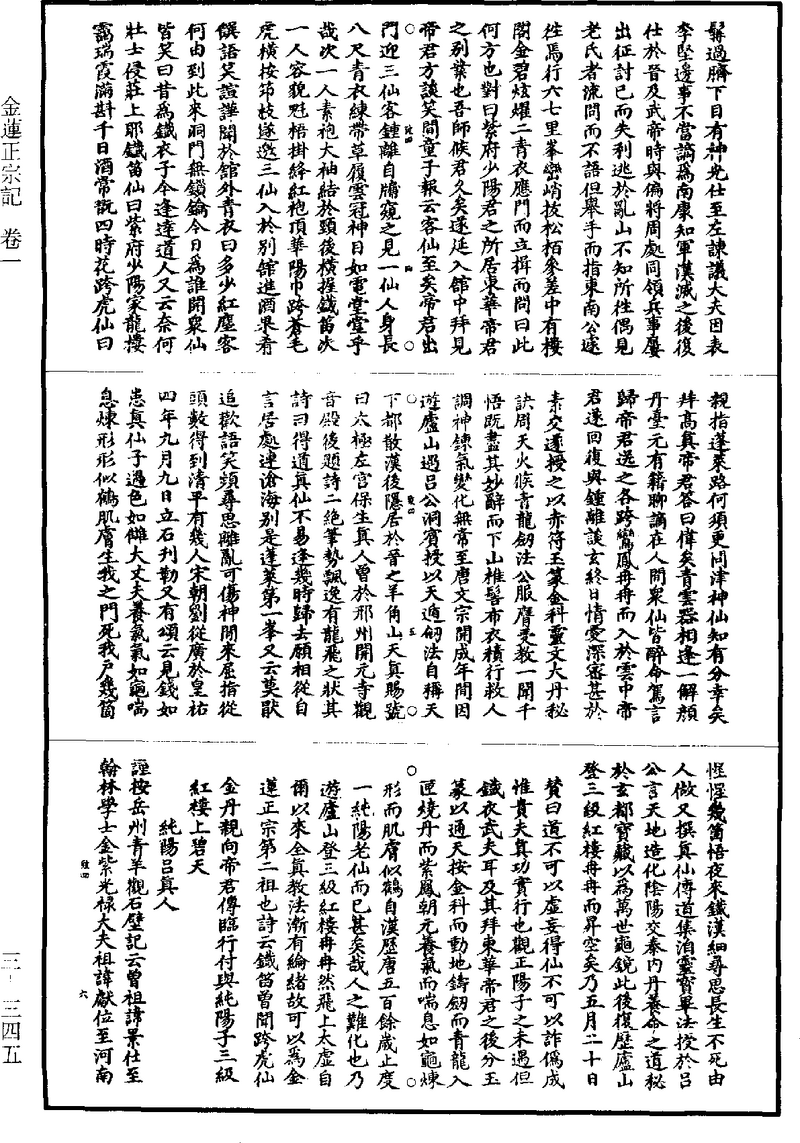 金蓮正宗記　卷一
三-三四五
髯過臍下目有神光仕至左諫議大夫因表
李堅邊事不當謫爲南康知軍漢滅之後復
仕於晉及武帝時與偏將周處同領兵事屢
出征討已而失利逃於亂山不知所往偶見
老氏者流問而不語但舉手而指東南公遂
徃焉行六七里峯巒峭拔松栢參差中有樓
閣金碧炫燿二青衣應門而立揖而問曰此
何方也對曰紫府少陽君之所居東華帝君
之别業也吾師候君久矣遂延入館中拜見
帝君方談笑間童子報云客仙至矣帝君出
門迎三仙客鍾離自牖窺之見一仙人身長
八尺青衣練帶草履雲冠神日如電堂堂乎
哉次一人素袍大袖結於頸後橫握鐵笛次
一人容貌魁梧掛絳紅袍頂華陽巾跨蒼毛
虎橫按筇枝遂邀三仙入於别館進酒果肴
饌語笑諠譁聞於館外青衣曰多少紅塵客
何由到此來洞門無鎖鑰今日爲誰開衆仙
皆笑曰昔爲鐵衣子今逢達道人又云奈何
壯士侵莊上耶鐵笛仙曰紫府少陽家龍樓
靄瑞霞滿斟千日酒常翫四時花跨虎仙曰
親指蓬萊路何須更問津神仙知有分幸矣
拜高真帝君答曰偉矣青雲器相逢一解顏
丹臺元有籍聊謫在人間衆仙皆醉命駕言
歸帝君送之各跨鸞鳳冉冉而入於雲中帝
君遂回復與鍾離談玄終日情愛深密甚於
素交遂授之以赤符玉篆金科靈文大丹秘
訣周天火候青龍劒法公服膺受教一聞千
悟既盡其妙辭而下山椎髻布衣積行救人
調神鍊氣變化無常至唐文宗開成年間因
遊廬山遇呂公洞賓授以天遁劒法自稱天
下都散漢後隱居於晉之羊角山天真賜號
曰太極左宮保生真人曾於邢州開元寺觀
音殿後題詩二絶筆勢飄逸有龍飛之狀其
詩曰得道真仙不易逢幾時歸去願相從自
言居處連滄海别是蓬萊第一峯又云莫猒
追歡語笑頻尋思離亂可傷神閒來屈指從
頭數得到清平有幾人宋朝劉從廣於皇祐
四年九月九日立石刋勒又有頌云見錢如
患真仙子遇色如讎大丈夫養氣氣如龜喘
息煉形形似鶴肌膚生我之門死我戶幾箇
惺惺幾箇悟夜來鐵漢細尋思長生不死由
人做又撰真仙傳道集洎靈寶畢法授於呂
公言天地造化陰陽交泰内丹養命之道秘
於玄都寶藏以爲萬世龜鏡此後復歷廬山
登三級紅樓冉冉而昇空矣乃五月二十日
贊曰道不可以虛妄得仙不可以詐僞成
惟貴夫真功實行也觀正陽子之未遇但
鐵衣武夫耳及其拜東華帝君之後分玉
篆以通天按金科而動地鑄劒而青龍入
匣繞丹而紫鳳朝元養氣而喘息如龜煉
形而肌膚似鶴自漢歷唐五百餘歲止度
一純陽老仙而已甚矣哉人之難化也乃
遊廬山登三級紅樓冉冉然飛上太虛自
爾以來全真教法漸有綸緒故可以爲金
蓮正宗第二祖也詩云鐵笛曾聞跨虎仙
金丹親向帝君傳臨行付與純陽子三級
紅樓上碧天
純陽呂真人
謹按岳州青羊觀石壁記云曾祖諱景仕至
翰林學士金紫光禄大夫祖諱獻位至河南